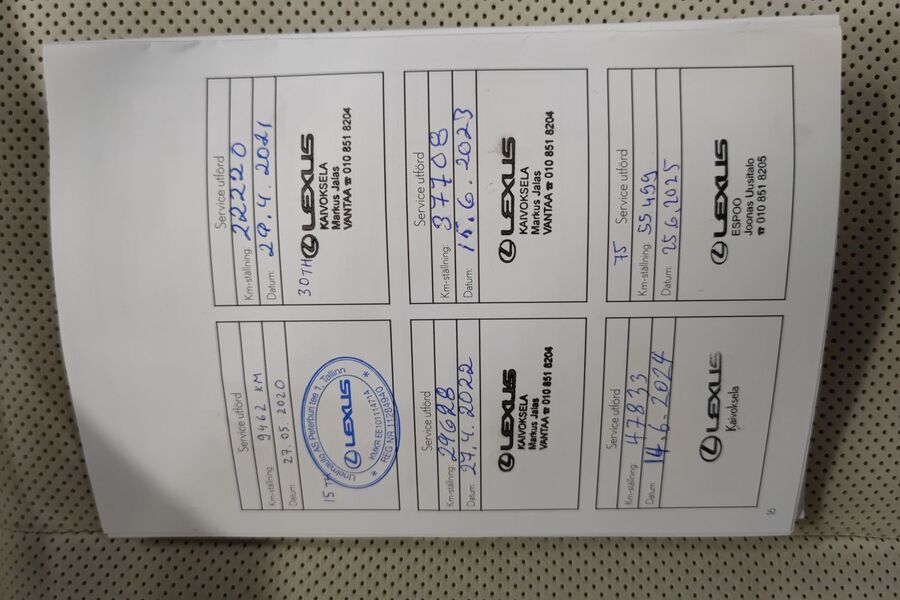 Service utförd
Km-ställning: 9462 KM
Datum: 27. 05. 2020
15TH
Unoimauto AS Peterburi tee 1, Tallinn
LEXUS
REG NR 11284940
Service utförd
Km-ställning: 22220
Datum: 29.4.2021
30TH
LEXUS
KAIVOKSELA
Markus Jalas
VANTAA ☎ 010 851 8204
Service utförd
Km-ställning: 29628
Datum: 27.4.2022
LEXUS
KAIVOKSELA
Markus Jalas
VANTAA ☎ 010 851 8204
Service utförd
Km-ställning: 37708
Datum: 15.6.2023
LEXUS
KAIVOKSELA
Markus Jalas
VANTAA ☎ 010 851 8204
Service utförd
Km-ställning: 47833
Datum: 14.6.2024
LEXUS
Kaivoksela
75 Service utförd
Km-ställning: 55499
Datum: 25.6.2025
LEXUS
ESPOO
Joonas Uusitalo
☎ 010 851 8205
16